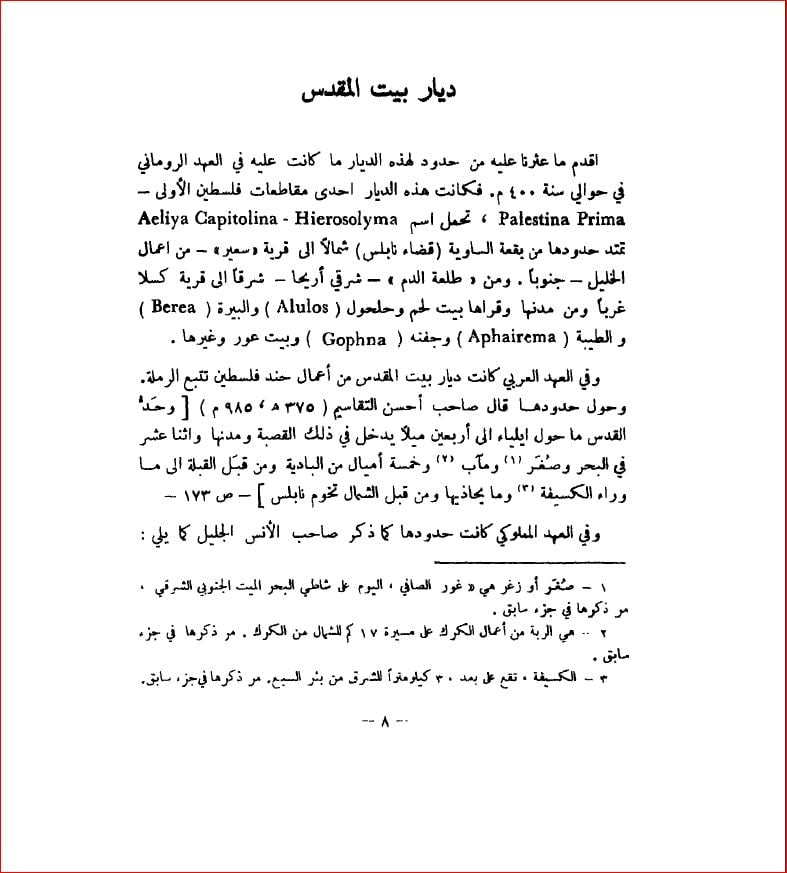 ديار بيت المقدس
اقدم ما عثرنا عليه من حدود لهذه الديار ما كانت عليه في العهد الروماني
في حوالي سنة ٤٠٠ م. فكانت هذه الديار احدى مقاطعات فلسطين الأولى –
Palestina Prima ، تحمل اسم Aeliya Capitolina - Hierosolyma
تمتد حدودها من بقعة الساوية (قضاء نابلس) شمالاً الى قرية «سعير» – من اعمال
الخليل – جنوباً . ومن « طلعة الدم » – شرقي أريحا – شرقاً الى قرية كسلا
غرباً ومن مدنها وقراها بيت لحم وحلحول ( Alulos ) والبيرة ( Berea )
و الطيبة ( Aphairema ) وجفنه ( Gophna ) وبيت عور وغيرها .
وفي العهد العربي كانت ديار بيت المقدس من أعمال حند فلسطين تتبع الرملة.
وحول حدودها قال صاحب أحسن التقاسيم ( ٣٧٥ ه ، ٩٨٥ م ) [ وحَدّ
القدس ما حول ايلياء الى أربعين ميلاً يدخل في ذلك القصبة ومدنها واثنا عشر
في البحر وصُغَر (١) ومآب (٢) وخمسة أميال من البادية ومن قبَل القبلة الى ما
وراء الكسيفة (٣) وما يحاذيها ومن قبل الشمال تخوم نابلس ] – ص ١٧٣ –
وفي العهد المملوكي كانت حدودها كما ذكر صاحب الأنس الجليل كما يلي :
١ – صُغَر أو زغر هي « غور الصافي ، اليوم على شاطي البحر الميت الجنوبي الشرقي ،
مر ذكرها في جزء سابق .
٢ .. هي الربة من أعمال الكرك على مسيرة ١٧ كم للشمال من الكرك . مر ذكرها في جزء
سابق .
٣ – الكسيفة ، تقع على بعد ٣٠ كيلومتراً للشرق من بئر السبع. مر ذكرها في جزء سابق.
– ٨ –